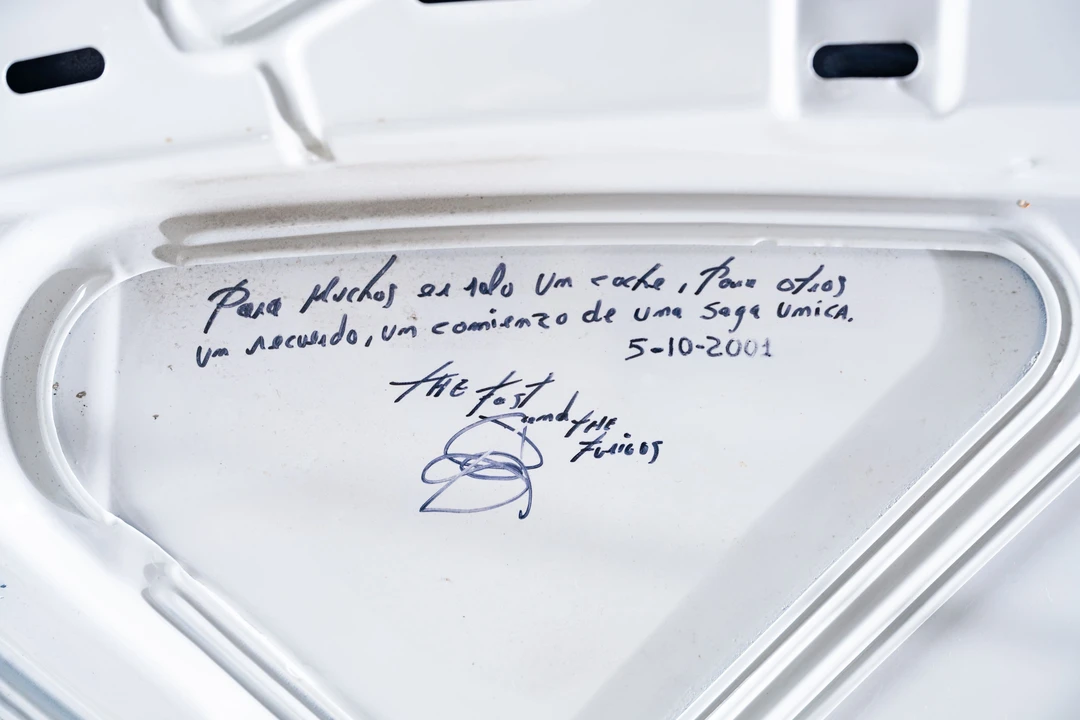 Para Muchos es solo Un coche, Para otros
un recuerdo, un comienzo de una saga Unica.
5-10-2001
THE Fast
and THE
Furios